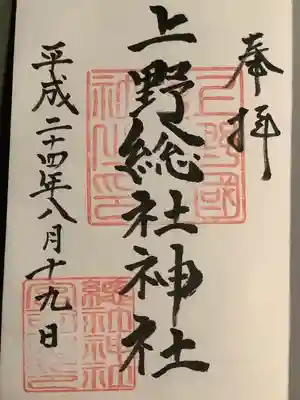 奉拝
上野総社神社
平成二十四年八月十九日